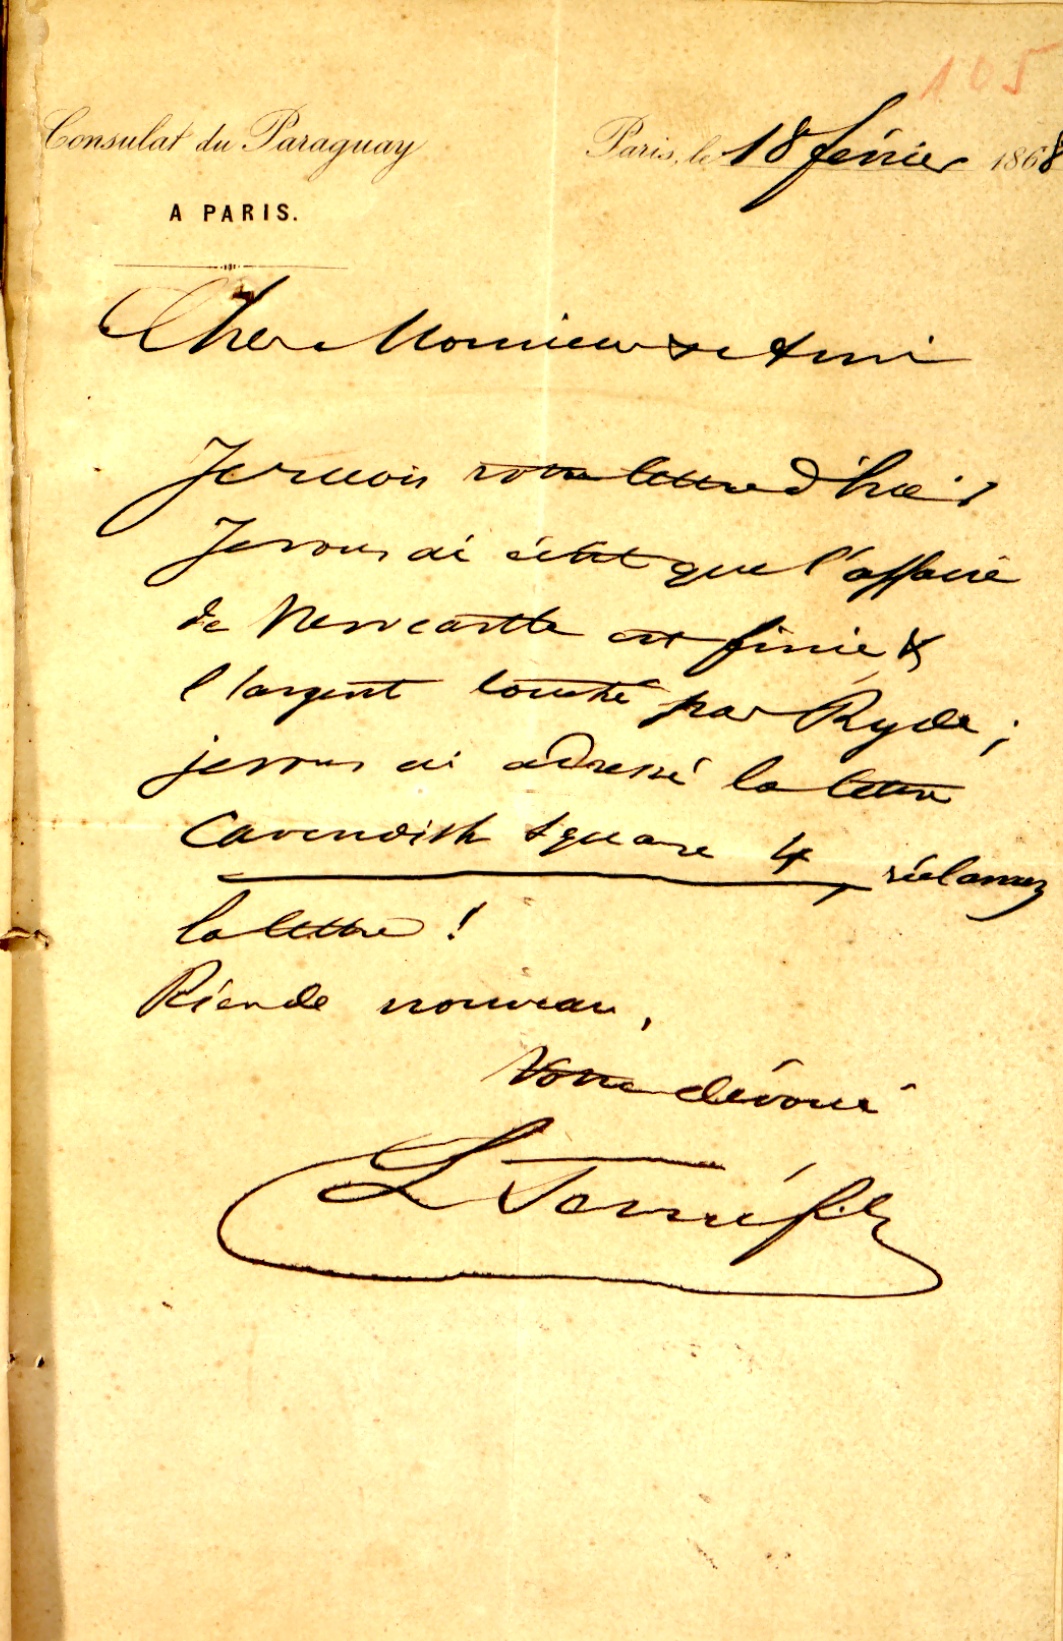 105
Consulat du Paraguay
A PARIS.
Paris, le 18 février 1868
Cher Monsieur & Ami
Je reçois votre lettre d'hier
Je vous ai écrit que l'affaire
de Newcastle est finie &
l'argent touché par Hyde ;
je vous ai adressé la lettre
Cavendish Square 4, réclamez
la lettre !
Rien de nouveau,
Votre dévoué
L